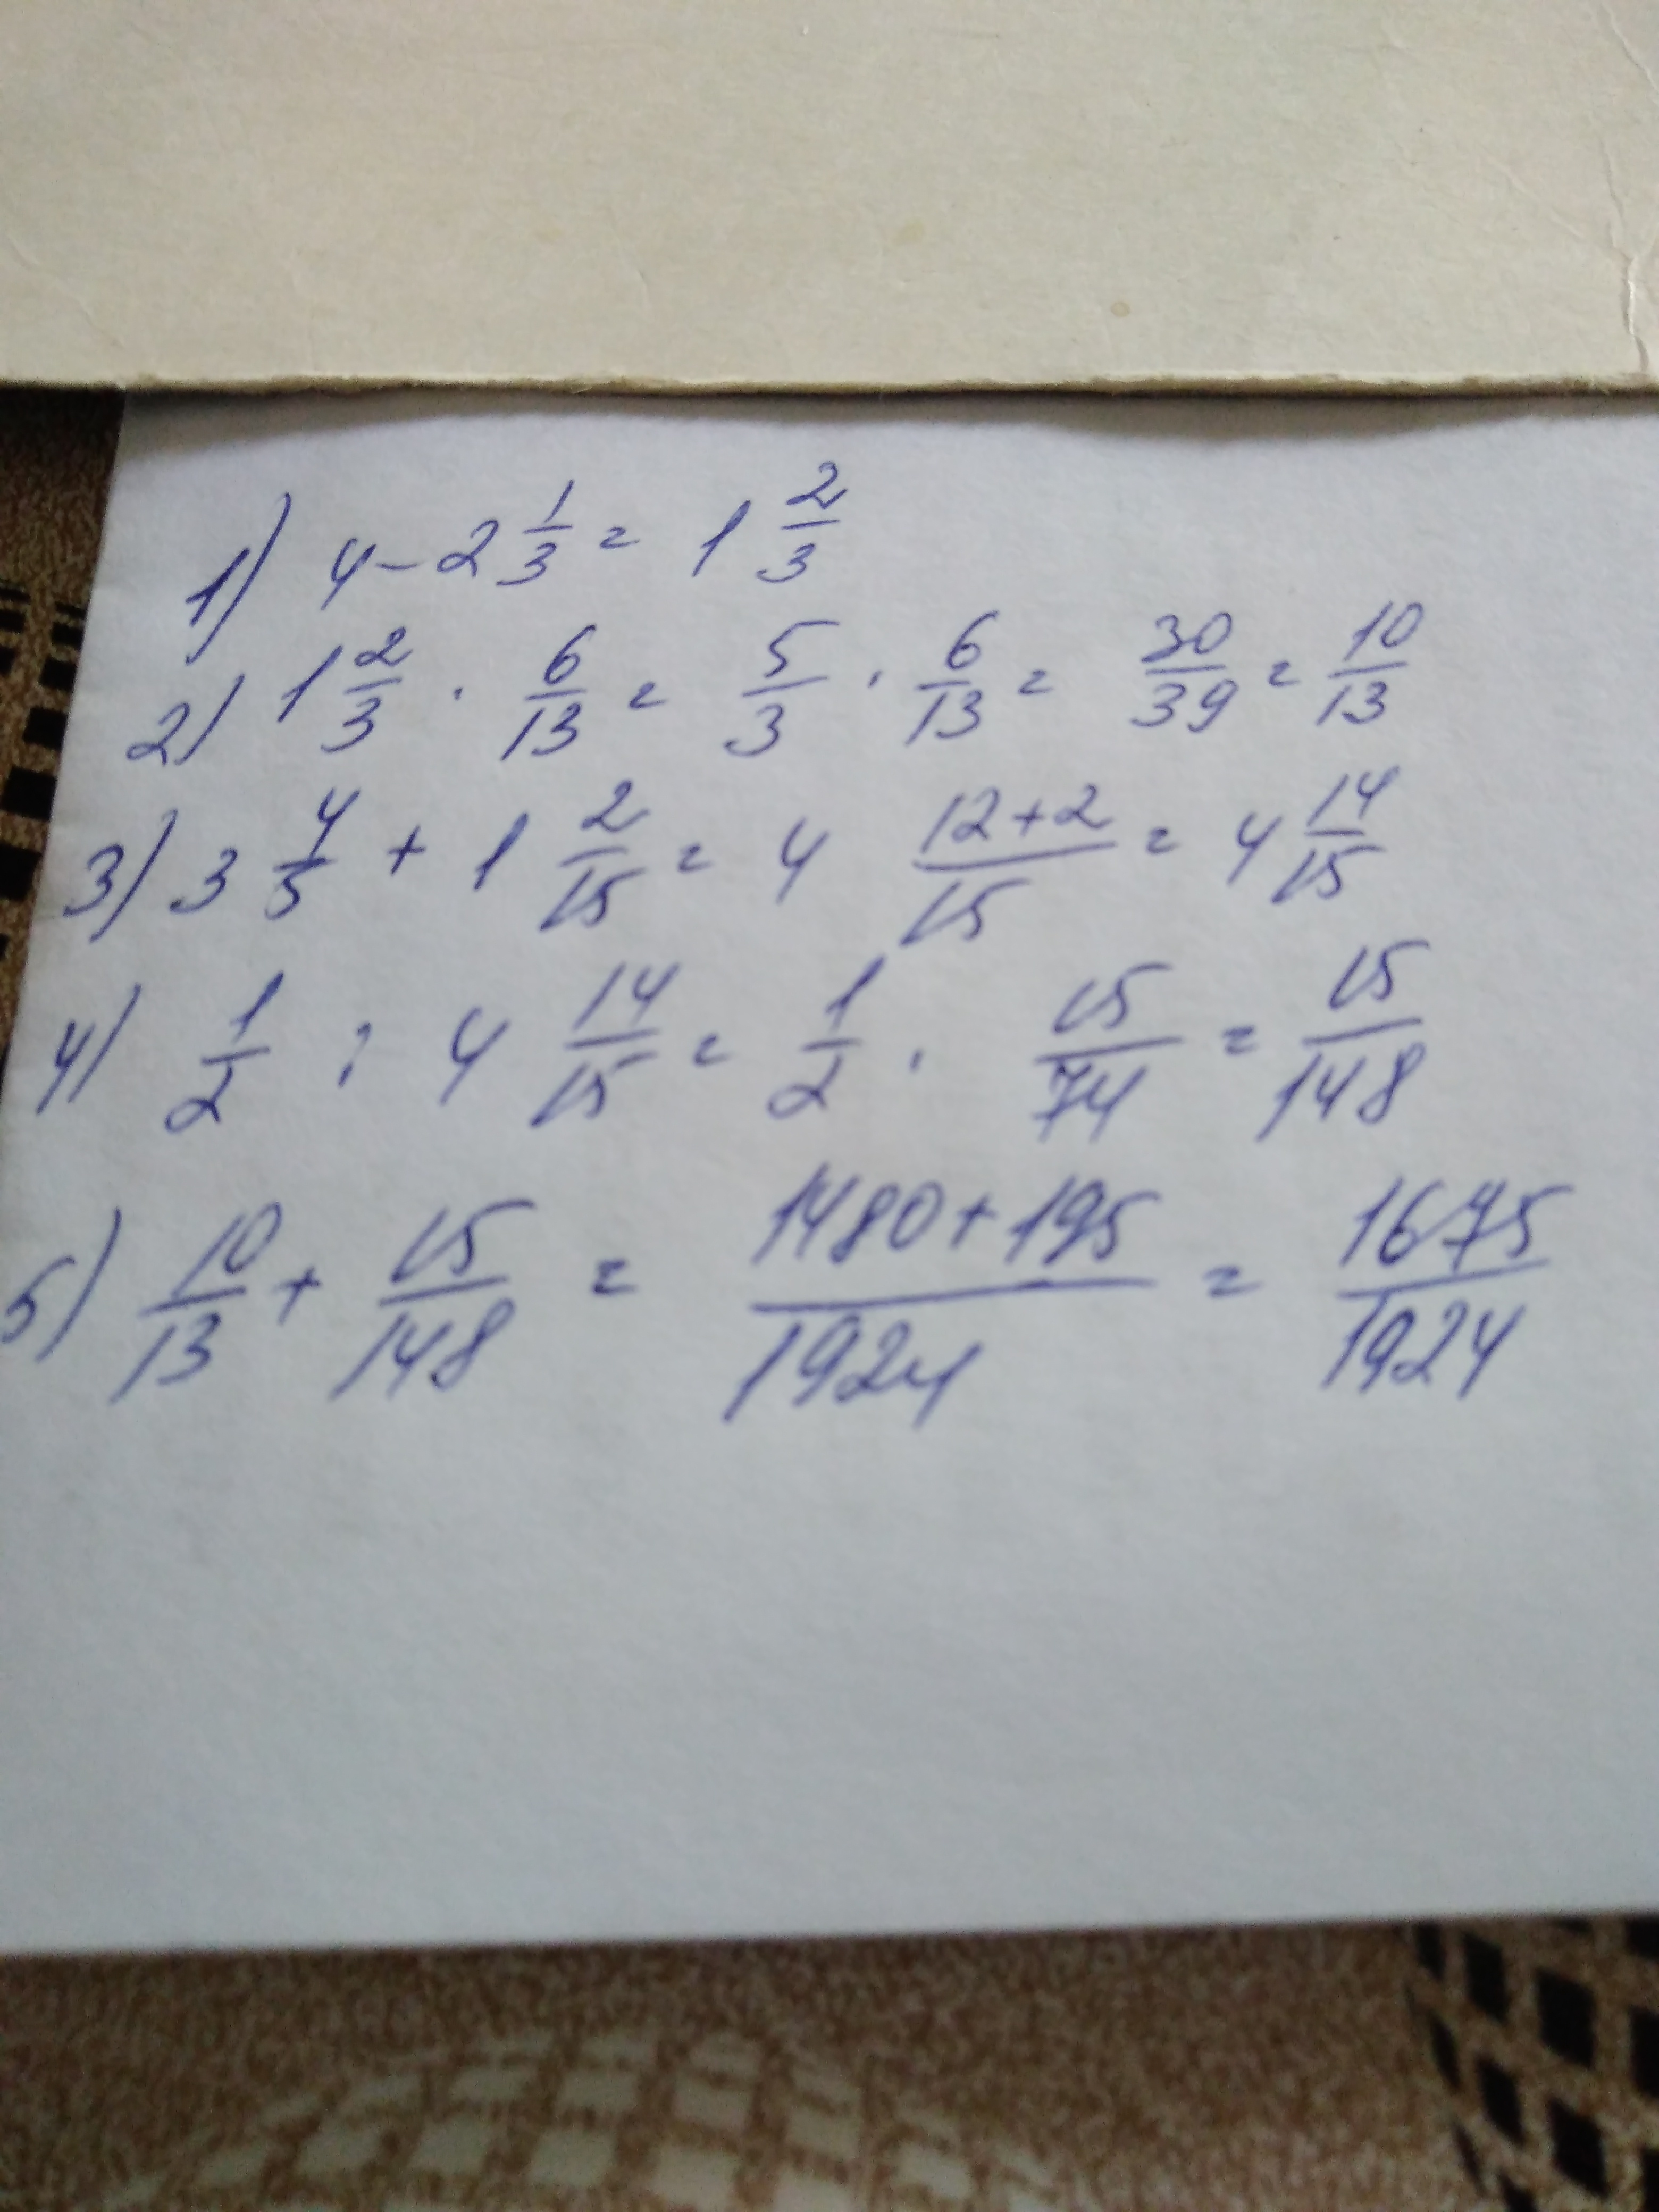 1) 4 - 2 1/3 = 1 2/3
2) 1 2/3 · 6/13 = 5/3 · 6/13 = 30/39 = 10/13
3) 3 4/5 + 1 2/15 = 4 (12+2)/15 = 4 14/15
4) 1/2 : 4 14/15 = 1/2 · 15/74 = 15/148
5) 10/13 + 15/148 = (1480+195)/1924 = 1675/1924